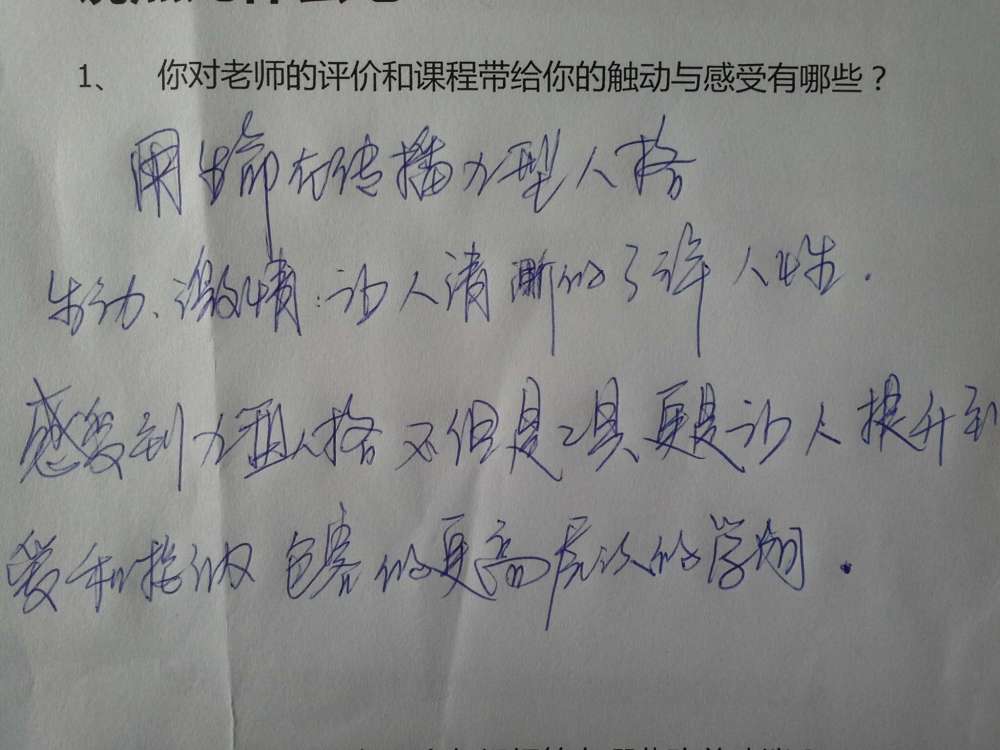 1、 你对老师的评价和课程带给你的触动与感受有哪些？
用生命在传播九型人格
生动、激情：让人清晰的了许人性.
感受到九型人格不但是工具更是让人提升到
爱和接纳 包容的更高层次的学期.